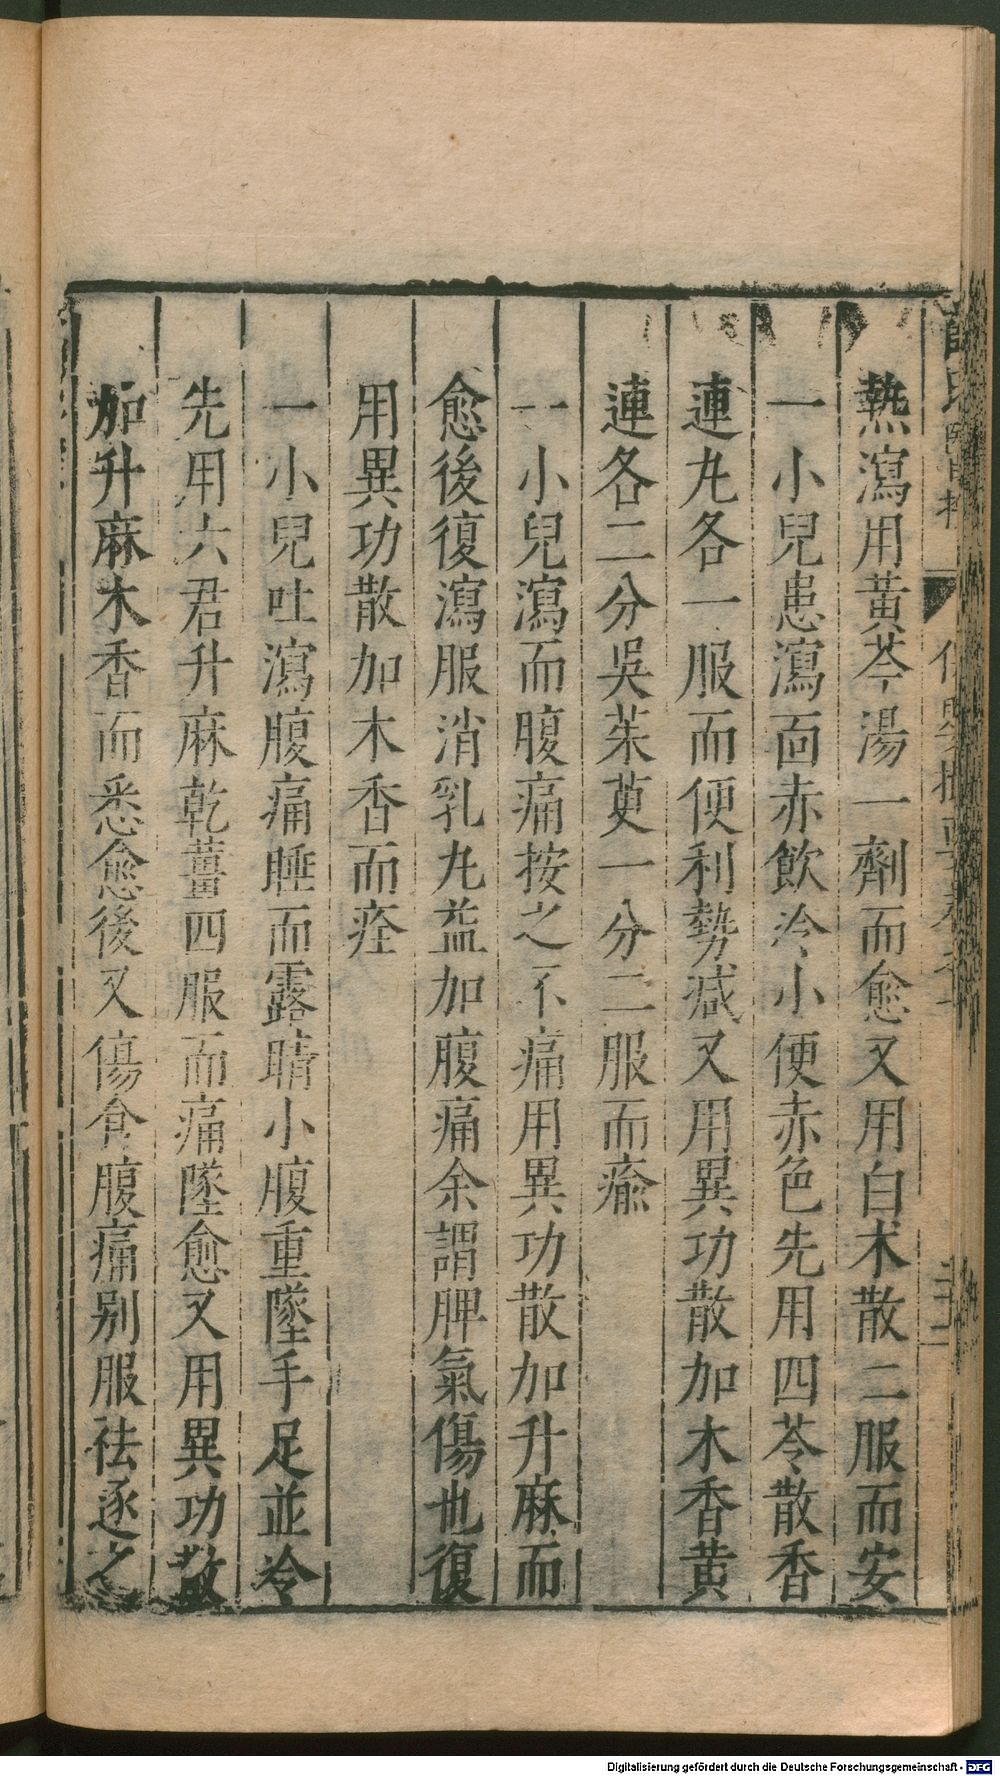 熱瀉用黃芩湯一劑而愈又用白朮散二服而安
一小兒患瀉面赤飲冷小便赤色先用四苓散香
連丸各一服而便利勢減又用異功散加木香黃
連各二分吳茱萸一分二服而瘉
一小兒瀉而腹痛按之不痛用異功散加升麻而
愈後復瀉服消乳丸益加腹痛余謂脾氣傷也復
用異功散加木香而痊
一小兒吐瀉腹痛睡而露睛小腹重墜手足並冷
先用六君升麻乾薑四服而痛墜愈又用異功散
加升麻木香而悉愈後又傷食腹痛別服祛逐之
Digitalisierung gefördert durch die Deutsche Forschungsgemeinschaft - DFG